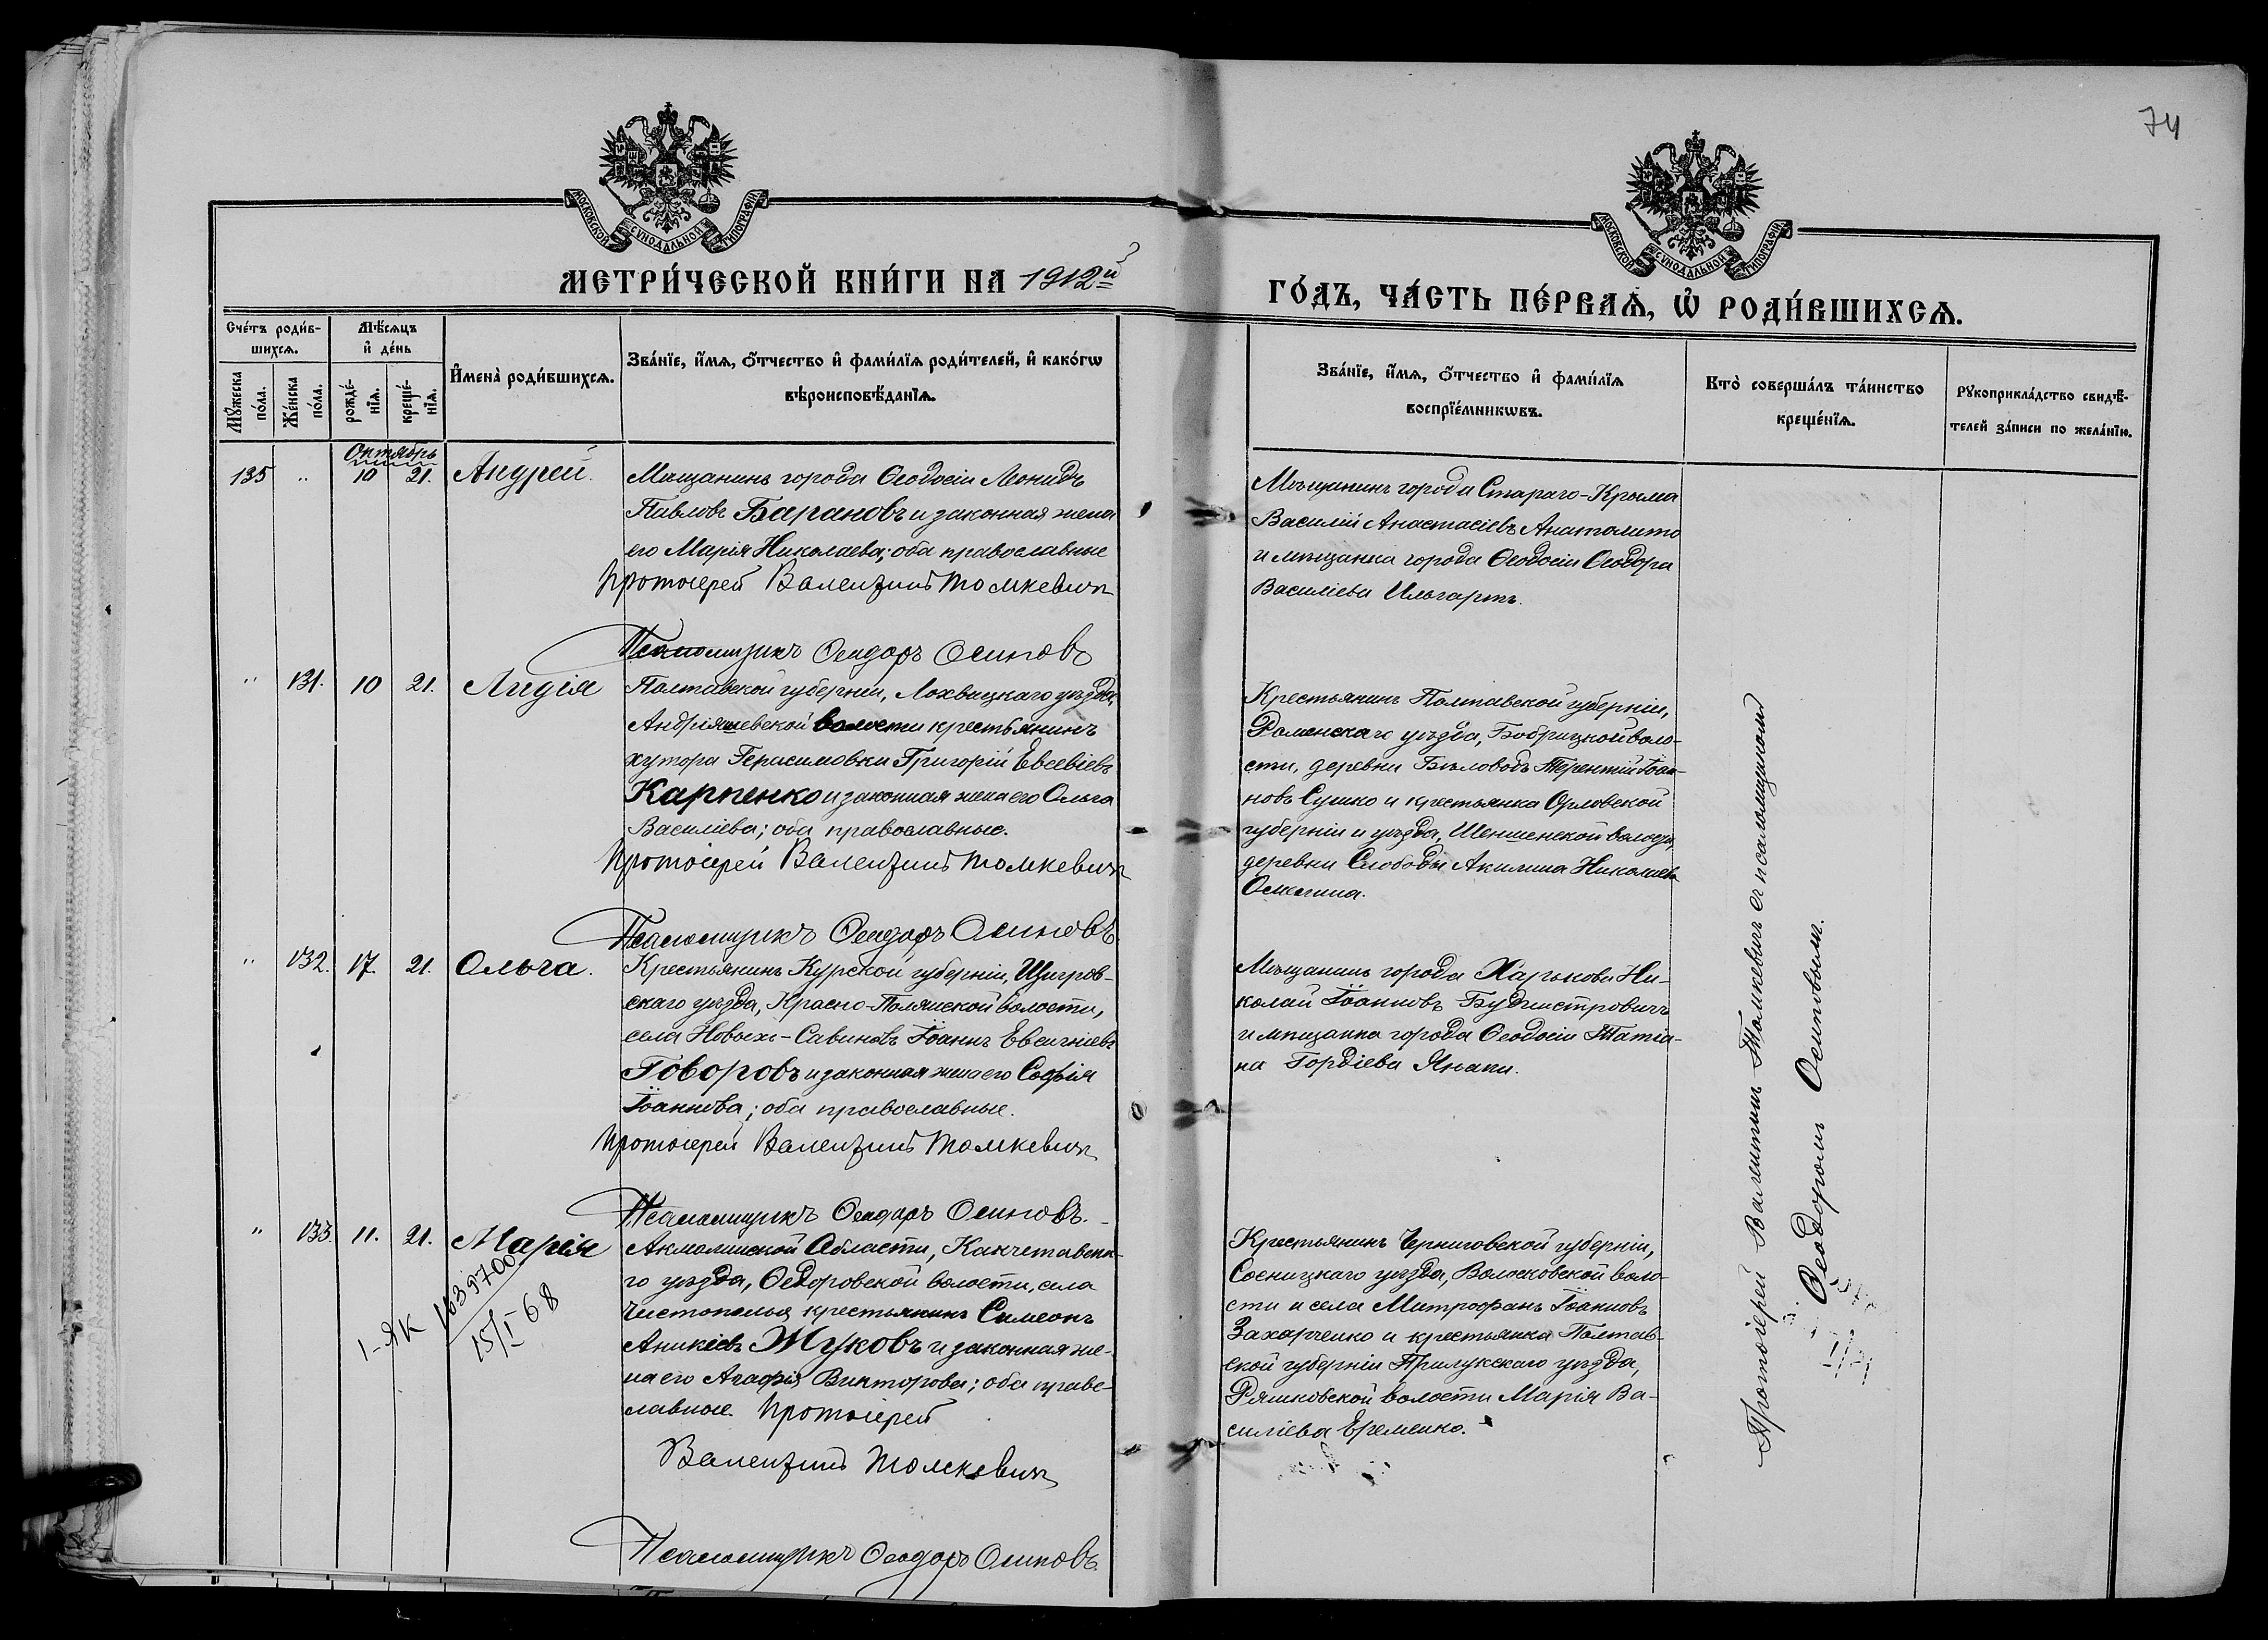 74
МОСКОВСКОЙ СѴНОДАЛЬНОЙ ТИПОГРАФІИ
МОСКОВСКОЙ СѴНОДАЛЬНОЙ ТИПОГРАФІИ
МЕТРИ́ЧЕСКОЙ КНИ́ГИ НА 1912й
ГО́ДЪ, ЧА́СТЬ ПЕ́РВАѦ, Ѡ҆ РОДИ́ВШИХСѦ.
Сче́тъ роди́в-
шихсѧ.
Мꙋ́жеска
по́ла.
Же́нска
по́ла.
Мѣ́сѧцъ
и҆ де́нь
рожде́-
нїѧ.
креще́-
нїѧ.
И҆мена̀ роди́вшихсѧ.
Зва́нїе, и҆́мѧ, ѻ҆́тчество и҆ фами́лїѧ роди́телей, и҆ како́гѡ
вѣроисповѣ́данїѧ.
Зва́нїе, и҆́мѧ, ѻ҆́тчество и҆ фами́лїѧ
воспрїе́мникѡвъ.
Кто̀ соверша́лъ та́инство
креще́нїѧ.
Рꙋкоприкла́дство свидѣ́-
телей за́писи по жела́нїю.
Октябрь
135 " 10 21. Андрей.
Мѣщанинъ города Ѳеодосіи Леонидъ
Павловъ Барановъ и законная жена
его Марія Николаева; оба православные
Протоіерей Валентинъ Томкевичъ
Псаломщикъ Ѳеодоръ Осиповъ
Мѣщанинъ города Стараго-Крыма
Василій Анастасіевъ Анатолито
и мѣщанка города Ѳеодосіи Ѳеодора
Василіева Ильгартъ.
" 131. 10 21. Лидія
Полтавской губерніи, Лохвицкаго уѣзда,
Андріяшевской волости крестьянинъ
хутора Герасимовки Григорій Евсевіевъ
Карпенко и законная жена его Ольга
Василіева; оба православные.
Протоіерей Валентинъ Томкевичъ
Псаломщикъ Ѳеодоръ Осиповъ.
Крестьянинъ Полтавской губерніи,
Роменскаго уѣзда, Бобрицкой воло-
сти, деревни Бѣловодъ Терентій Іоан-
новъ Сушко и крестьянка Орловской
губерніи и уѣзда, Шеншенской волости,
деревни Слободы Акилина Николаева
Осмогина.
" 132. 17. 21. Ольга.
Крестьянинъ Курской губерніи, Щигров-
скаго уѣзда, Красно-Полянской волости,
села Новыхъ-Савиновъ Іоаннъ Евсигніевъ
Говоровъ и законная жена его Софія
Іоаннова; оба православные.
Протоіерей Валентинъ Томкевичъ
Псаломщикъ Ѳеодоръ Осиповъ.
Мѣщанинъ города Харькова Ни-
колай Іоанновъ Буджистровичъ
и мѣщанка города Ѳеодосіи Татіа-
на Гордіева Янаки.
" 133. 11. 21. Марія
I-ЯК 1639700
15/I 68
Акмолинской Области, Какчетавска-
го уѣзда, Ѳедоровской волости, села
Чистополья крестьянинъ Симеонъ
Аникіевъ Жуковъ и законная же-
на его Агафія Викторова; оба право-
славные. Протоіерей
Валентинъ Томкевичъ
Псаломщикъ Ѳеодоръ Осиповъ.
Крестьянинъ Черниговской губерніи,
Сосницкаго уѣзда, Волосковской воло-
сти и села Митрофанъ Іоанновъ
Захарченко и крестьянка Полтав-
ской губерніи Прилукскаго уѣзда,
Ряшковской волости Марія Ва-
силіева Еременко.
Протоіерей Валентинъ Томкевичъ съ псаломщикомъ
Ѳеодоромъ Осиповымъ.